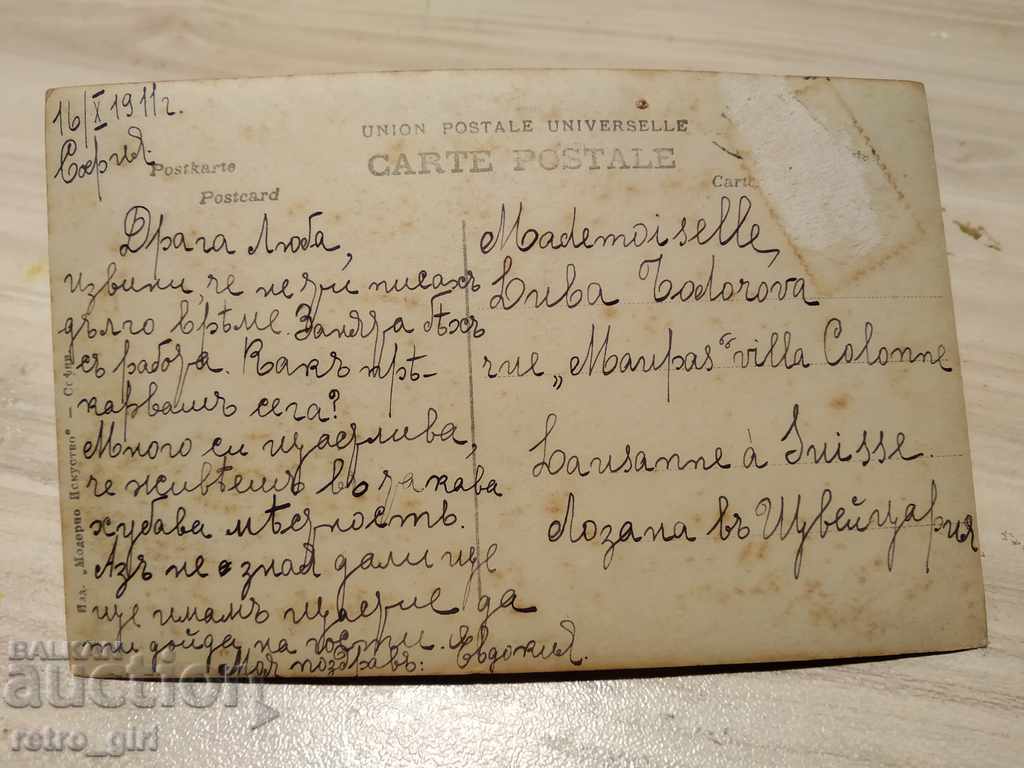 16/X 1911 г.
София.
UNION POSTALE UNIVERSELLE
CARTE POSTALE
Postkarte
Postcard
Cart
Драга Люба,
извини, че не ти писахъ
дълго врѣме. Заната бѣхъ
съ работа. Какъ прѣ-
карвашъ сега?
Много си щастлива,
че живѣешъ въ такава
хубава мѣстность.
Азъ не зная дали ще
ще имамъ щастие да
ти дойда на гости.
Моя поздравъ: Евдокия.
Mademoiselle,
Luba Todorova
rue „Maupas“ villa Colonne
Lausanne à Suisse.
Лозана въ Щвейцария
Изд. „Модерно Искуство“ — София
BALKAN
auction
retro_girl